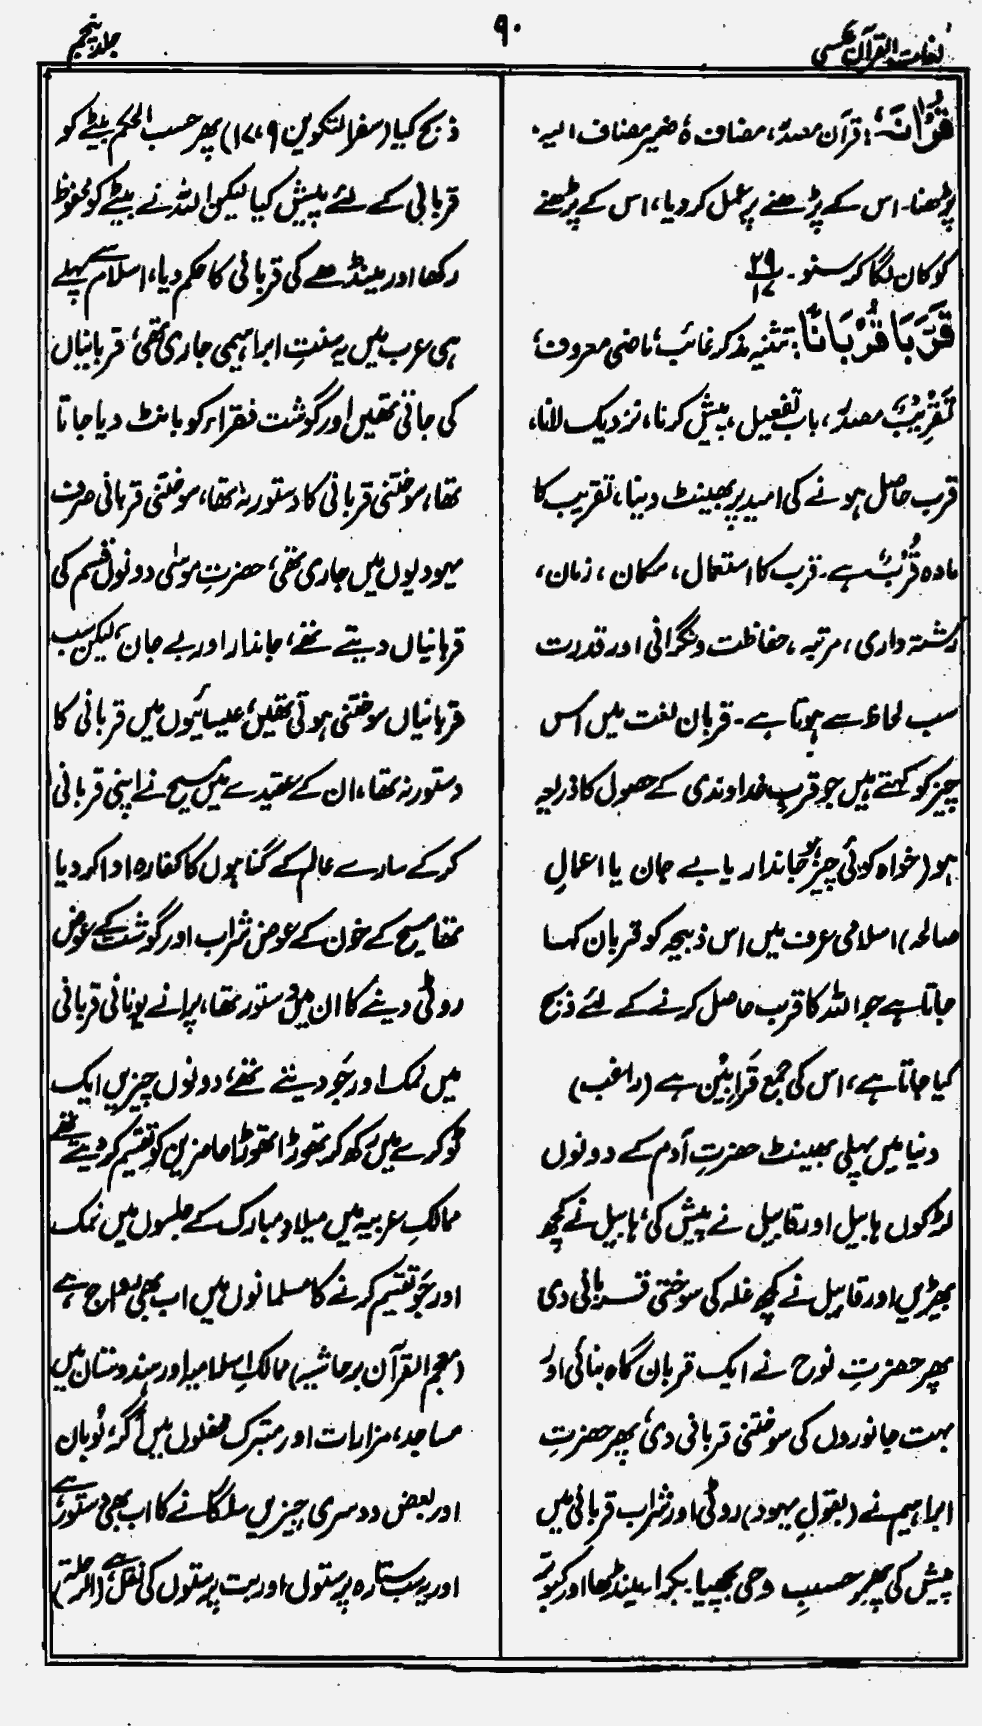 لغات القرآن عکسی
۹۰
جلد پنجم
قُرْاٰنَہٗ: قرآن مصدر، مضاف ہٗ ضمیر مضاف الیہ۔
پڑھنا۔ اس کے پڑھنے پر عمل کر دیا، اس کے پڑھنے
کو کان لگا کر سنو۔ ۲۹/۱۷
قَرَّبَا قُرْبَانًا: تثنیہ مذکر غائب، ماضی معروف،
تَقْرِیْبٌ مصدر، باب تفعیل، پیش کرنا، نزدیک لانا،
قرب حاصل ہونے کی امید پر بھینٹ دینا، تقریب کا
مادہ قُرْبٌ ہے۔ قرب کا استعمال، مکان، زمان،
رشتہ داری، مرتبہ، حفاظت و نگرانی اور قدرت
سب لحاظ سے ہوتا ہے۔ قربان لغت میں اس
چیز کو کہتے ہیں جو قربِ خداوندی کے حصول کا ذریعہ
ہو (خواہ کوئی چیز ہو جاندار یا بے جان یا اعمالِ
صالحہ) اسلامی عرف میں اس ذبیحہ کو قربان کہا
جاتا ہے جو اللہ کا قرب حاصل کرنے کے لئے ذبح
کیا جاتا ہے، اس کی جمع قَرَابِیْن ہے (راغب)
دنیا میں پہلی بھینٹ حضرتِ آدم کے دونوں
لڑکوں ہابیل اور قابیل نے پیش کی، ہابیل نے کچھ
بھیڑیں اور قابیل نے کچھ غلہ کی سوختی قربانی دی
پھر حضرتِ نوح نے ایک قربان گاہ بنائی اور
بہت جانوروں کی سوختنی قربانی دی، پھر حضرتِ
ابراہیم نے (بقولِ یہود) روٹی اور شراب قربانی میں
پیش کی پھر حسبِ وحی بچھیا بکرا مینڈھا اور کبوتر
ذبح کیا (سفر التکوین ۱۷،۹) پھر حسب الحکم بیٹے کو
قربانی کے لئے پیش کیا لیکن اللہ نے بیٹے کو محفوظ
رکھا اور مینڈھے کی قربانی کا حکم دیا، اسلام سے پہلے
ہی عرب میں یہ سنتِ ابراہیمی جاری تھی، قربانیاں
کی جاتی تھیں اور گوشت فقراء کو بانٹ دیا جاتا
تھا، سوختنی قربانی کا دستور نہ تھا، سوختنی قربانی صرف
یہودیوں میں جاری تھی، حضرتِ موسٰی دونوں قسم کی
قربانیاں دیتے تھے، جاندار اور بے جان، لیکن سب
قربانیاں سوختنی ہوتی تھیں، عیسائیوں میں قربانی کا
دستور نہ تھا، ان کے عقیدے میں مسیح نے اپنی قربانی
کر کے سارے عالم کے گناہوں کا کفارہ ادا کر دیا
تھا مسیح کے خون کے عوض شراب اور گوشت کے عوض
روٹی دینے کا ان میں دستور تھا، پرانے یونانی قربانی
میں نمک اور جَو دیتے تھے، دونوں چیزیں ایک
ٹوکرے میں رکھ کر تھوڑا تھوڑا حاضرین کو تقسیم کر دیتے تھے
ممالکِ عربیہ میں میلادِ مبارک کے جلسوں میں نمک
اور جَو تقسیم کرنے کا مسلمانوں میں اب بھی رواج ہے،
(معجم القرآن بر حاشیہ) ممالکِ اسلامیہ اور ہندوستان میں
مساجد، مزارات اور متبرک محفلوں میں اگر، لُوبان
اور بعض دوسری چیزیں سلگانے کا اب بھی دستور ہے،
اور یہ سب ستارہ پرستوں اور بت پرستوں کی نقل ہے، (الرحلۃ)